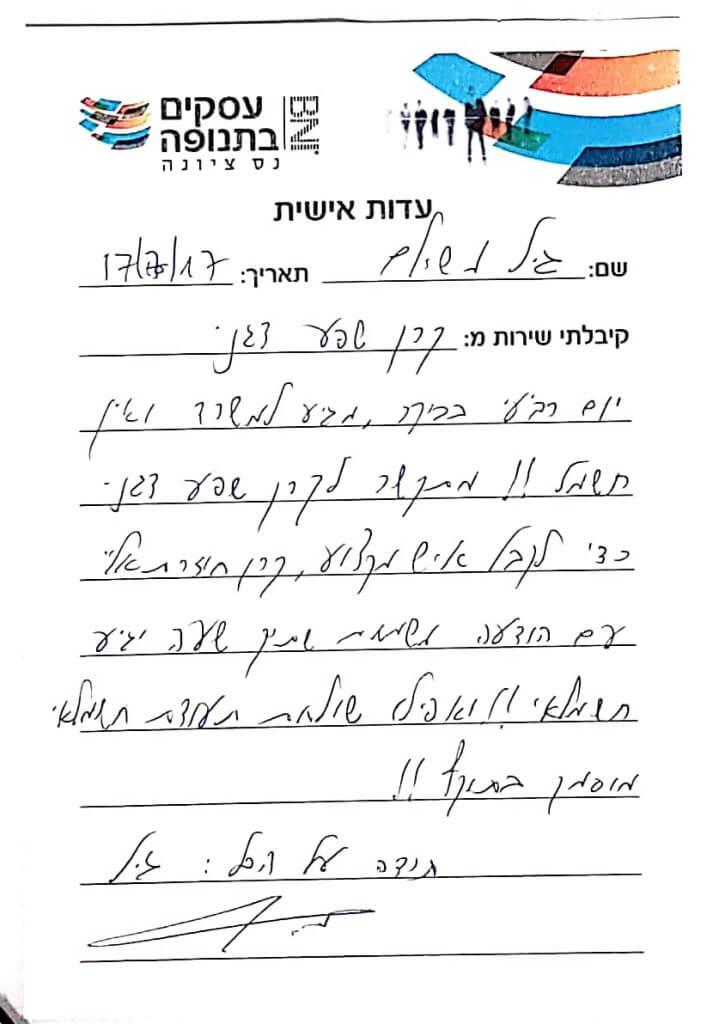 עסקים
בתנופה
BNI
נס ציונה
עדות אישית
שם: גיל משולם תאריך: 17/7/17
קיבלתי שירות מ: קרן שפע דגן
יום רביעי בבוקר, מגיע למשרד ואין
חשמל !! מתקשר לקרן שפע דגן
כדי לקבל איש מקצוע, קרן חוזרת אלי
עם הודעה משמחת שתוך שעה יגיע
חשמלאי !! ואפילו שולחת תעודת חשמלאי
מוסמך בתוקף !!
תודה על הכל : גיל